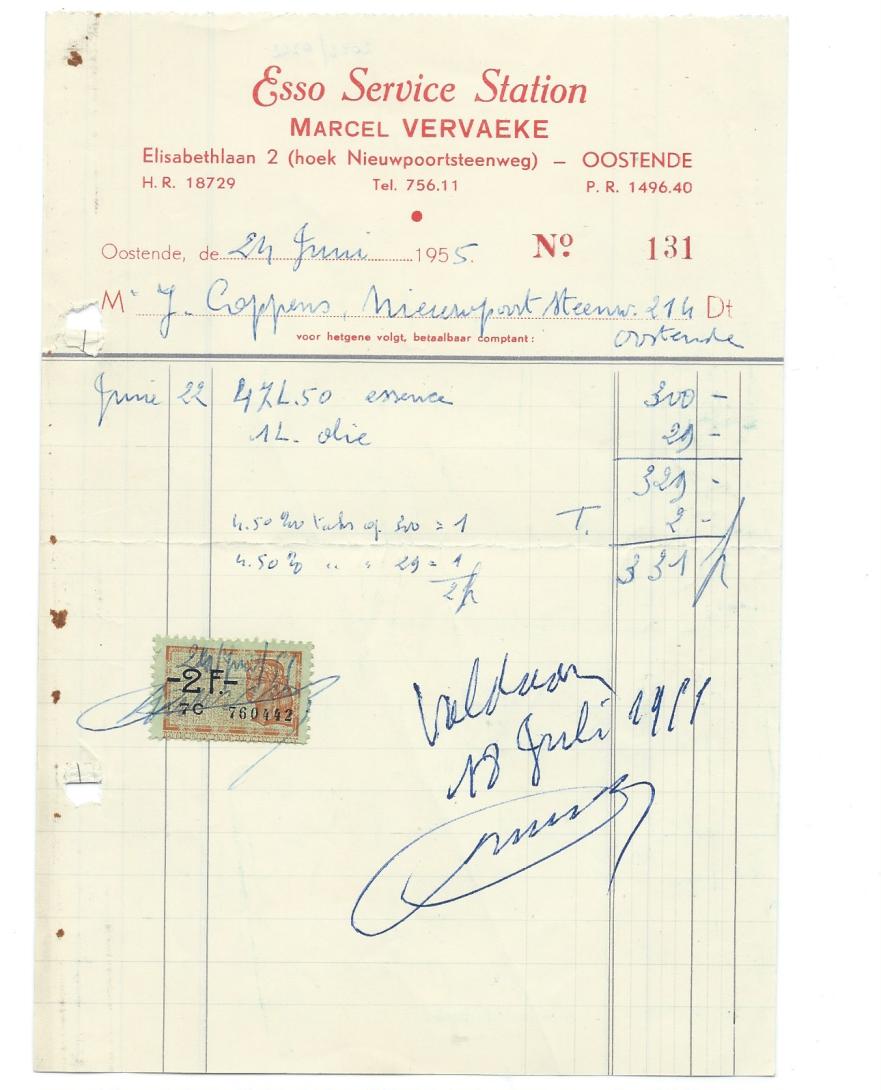 Esso Service Station
MARCEL VERVAEKE
Elisabethlaan 2 (hoek Nieuwpoortsteenweg) – OOSTENDE
H. R. 18729 Tel. 756.11 P. R. 1496.40
Oostende, de 24 Juni 1955. Nº 131
Mr J. Coppens, Nieuwpoort Steenw. 214 Dt
Oostende
voor hetgene volgt, betaalbaar comptant :
Junie 22 47L.50 essence 300 -
1L. olie 29 -
329 -
4.50 % taks op 300 = 1 T. 2 -
4.50 % " " 29 = 1 331
2
-2 F.-
7C 760442
Voldaan
18 Juli 1955